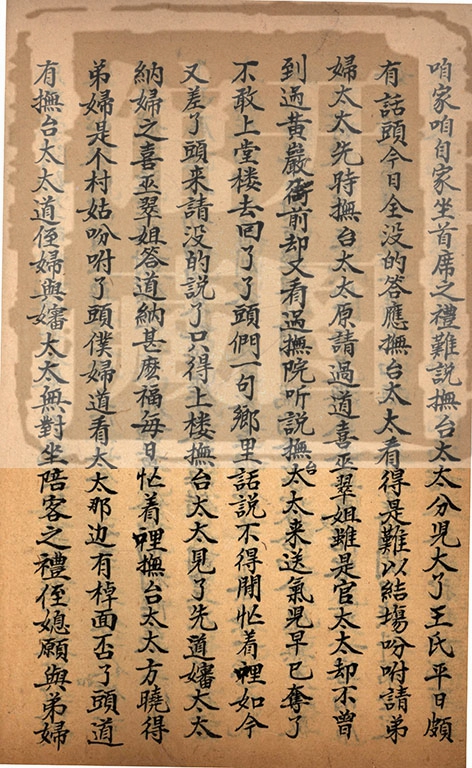 咱家咱自家坐首席之禮難説撫台太太分児大了王氏平日頗
有話頭今日全没的答應撫台太太看得是難以結塲吩咐請弟
婦太太先時撫台太太原請過道喜巫翠姐雖是官太太却不曾
到過黄嚴衙前却又看過撫院听説撫台太太来送氣児早已奪了
不敢上堂楼去回了了頭們一句鄉里話説不得閒忙着哩如今
又差了頭来請没的説了只得上楼撫台太太見了先道嬸太太
納婦之喜巫翠姐答道納甚麽福每日忙着哩撫台太太方曉得
弟婦是个村姑吩咐了頭僕婦道看太太那边有棹面否了頭道
有撫台太太道侄婦與嬸太太無對坐陪客之禮侄媳願與弟婦